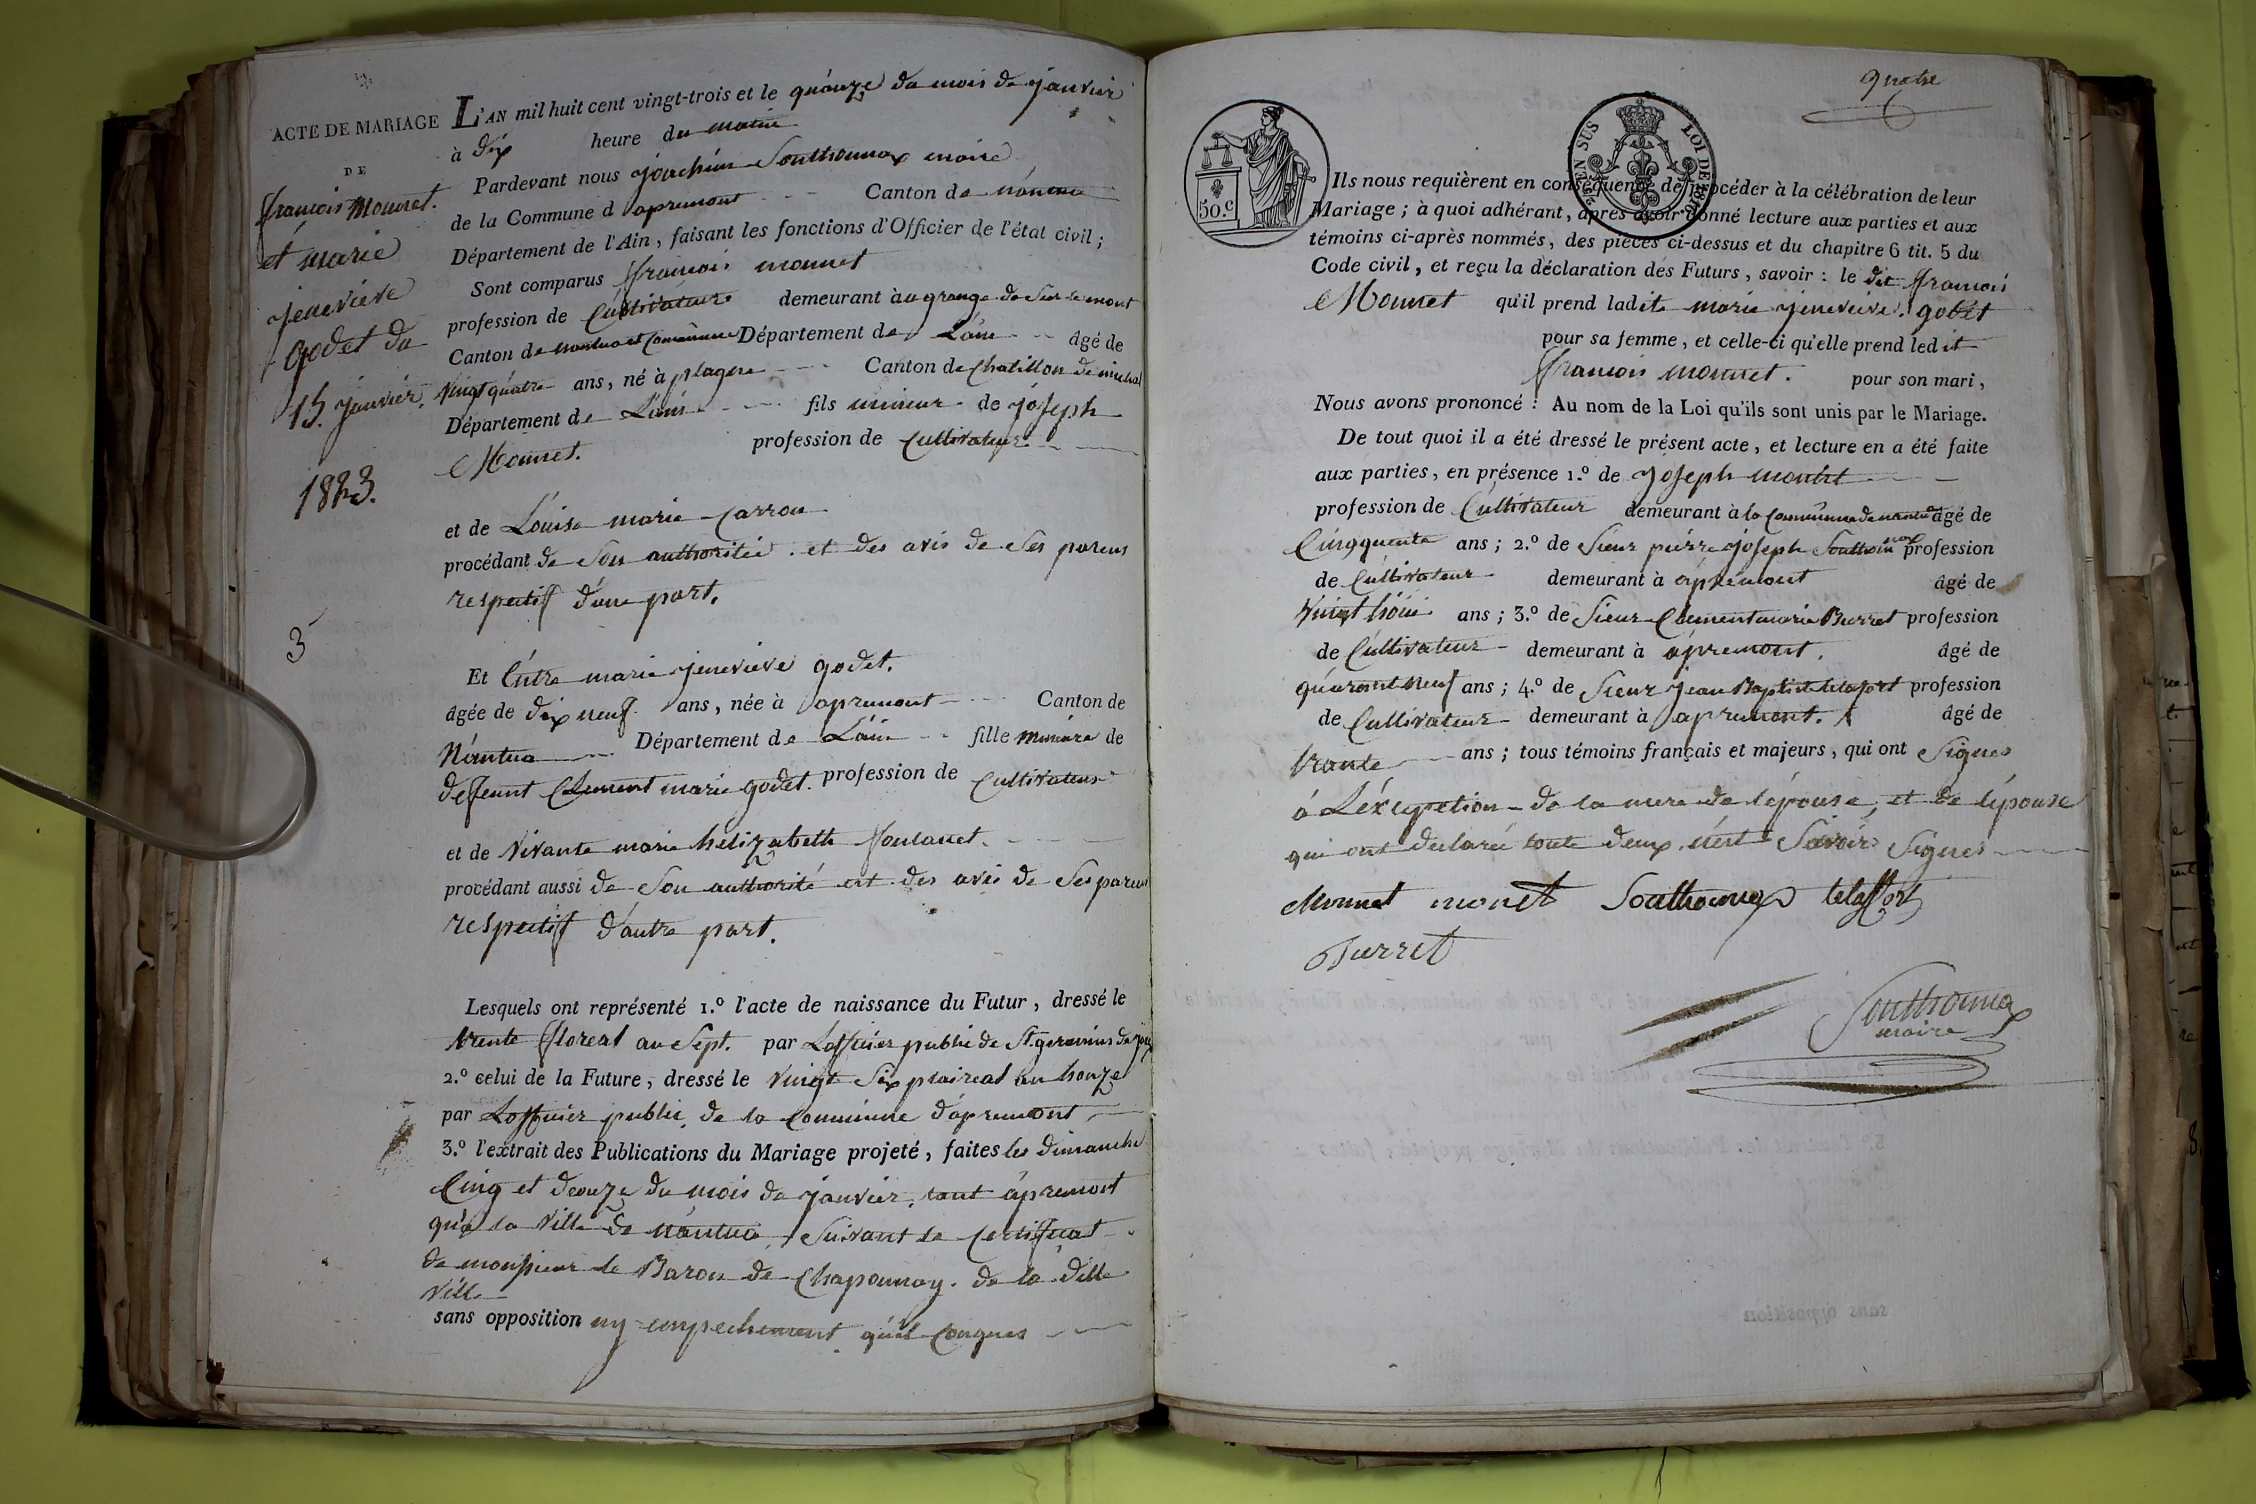 ACTE DE MARIAGE
DE
ffrancois Monnet.
et marie
jenevieve
godet du
15. janvier.
1823.
3
L'AN mil huit cent vingt-trois et le quinze du mois de janvier
à dix heure du matin
Pardevant nous joachim Southonnax maire
de la Commune d apremont Canton de nantua
Département de l'Ain, faisant les fonctions d'Officier de l'état civil;
Sont comparus ffrancois monnet
profession de Cultivateur demeurant à au grange de Sur le mont
Canton de nantua et Commune Département de L'ain âgé de
vingt quatre ans, né à plagne Canton de Chatillon de michal
Département de L'ain fils mineur de joseph
Monnet. profession de Cultivateur
et de Louise marie Carron
procédant de Son authoritée et des avis de Ses parens
respectif d'une part.
Et Entre marie jenevieve godet.
âgée de dix neuf ans, née à apremont Canton de
Nantua Département de L'ain fille mineure de
deffeunt Clement marie godet. profession de Cultivateur
et de vivante marie helizabeth ffontanet.
procédant aussi de Son authorité et des avis de Ses parens
respectif d'autre part.
Lesquels ont représenté 1.º l'acte de naissance du Futur, dressé le
trente ffloreal an Sept. par Lofficier public de St. germains de joux
2.º celui de la Future, dressé le vingt Six praireal an honze
par Lofficier public de la Commune d'apremont
3.º l'extrait des Publications du Mariage projeté, faites les dimanche
Cinq et douze du mois de janvier, tant apremont
qu'a la ville de nantua Suivant le Certifficat
de monsieur le Baron de Chaponnay. de la ditte
ville
sans opposition ny empechement qu'el Conques
quatre
50.C
EN SUS LOI DE 1816
Ils nous requièrent en conséquence de procéder à la célébration de leur
Mariage; à quoi adhérant, après avoir donné lecture aux parties et aux
témoins ci-après nommés, des pièces ci-dessus et du chapitre 6 tit. 5 du
Code civil, et reçu la déclaration des Futurs, savoir: le dit ffrancois
Monnet qu'il prend ladite marie jenevieve godet
pour sa femme, et celle-ci qu'elle prend ledit
ffrancois monnet. pour son mari,
Nous avons prononcé: Au nom de la Loi qu'ils sont unis par le Mariage.
De tout quoi il a été dressé le présent acte, et lecture en a été faite
aux parties, en présence 1.º de joseph monnet
profession de Cultivateur demeurant à la Commune de nantua âgé de
Cinqquente ans; 2.º de Sieur pierre joseph Southonnax profession
de Cultivateur demeurant à apremont âgé de
vingt ans; 3.º de Sieur Clement marie Burret profession
de Cultivateur demeurant à apremont. âgé de
quarant neuf ans; 4.º de Sieur jean Baptiste telafort profession
de Cultivateur demeurant à apremont. âgé de
trante ans; tous témoins français et majeurs, qui ont Signes
à L'éxcepetion de la mere de l'épouse, et de l'épouse
qui ont declaré toute deux Savoir Signes
Monnet monet Southonnax telaffort
Burret
Southonnax
maire
sans opposition